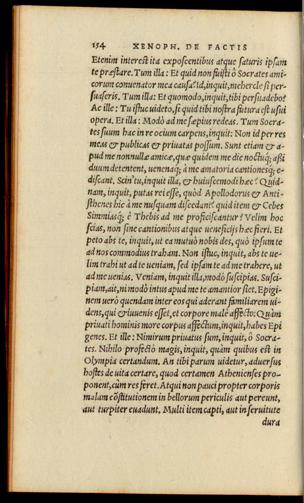 154 XENOPH. DE FACTIS
Etenim interest ita exposcentibus atque saturis ipsam
te præstare. Tum illa: Et quid non fuisti ô Socrates ami-
corum conuenator mea causa? Id, inquit, mehercle si per-
suaseris. Tum illa: Et quomodo, inquit, tibi persuadebo?
Ac ille: Tu istuc uideto, si quid tibi nostra futura est usui
opera. Et illa: Modò ad me sæpius redeas. Tum Socra-
tes suum hac in re ocium carpens, inquit: Non id per res
meas & publicas & priuatas possum. Sunt etiam & a-
pud me nonnullæ amicæ, quæ quidem me die noctuq; asti
duum detentent, uenenaq; à me amatoria cantionesq; e-
discant. Scin'tu, inquit illa, & huiuscemodi hæc? Quid-
nam, inquit, putas rei esse, quòd Apollodorus & Anti-
sthenes hic à me nusquam discedant? quid item & Cebes
Simmiasq; è Thebis ad me proficiscantur? Velim hoc
scias, non sine cantionibus atque ueneficijs hæc fieri. Et
peto abs te, inquit, ea mutuò nobis des, quò ipsum te
ad nos commodius traham. Non istuc, inquit, abs te ue-
lim trahi ut ad te ueniam, sed ipsam te ad me trahere, ut
ad me uenias. Veniam, inquit illa, modò suscipias. Susci-
piam, ait, ni modò intus apud me te amantior siet. Epigi-
nem uerò quendam inter eos qui aderant familiarem ui-
dens, qui & iuuenis esset, et corpore malè affecto: Quàm
priuati hominis more corpus affectum, inquit, habes Epi
genes. Et ille: Nimirum priuatus sum, inquit, ô Socra-
tes. Nihilo profectò magis, inquit, quàm quibus est in
Olympia certandum. An tibi parum uidetur, aduersus
hostes de uita certare, quod certamen Athenienses pro-
ponent, cùm res feret. Atqui non pauci propter corporis
malam cõstitutionem in bellorum periculis aut pereunt,
aut turpiter euadunt. Multi item capti, aut in seruitute
dura